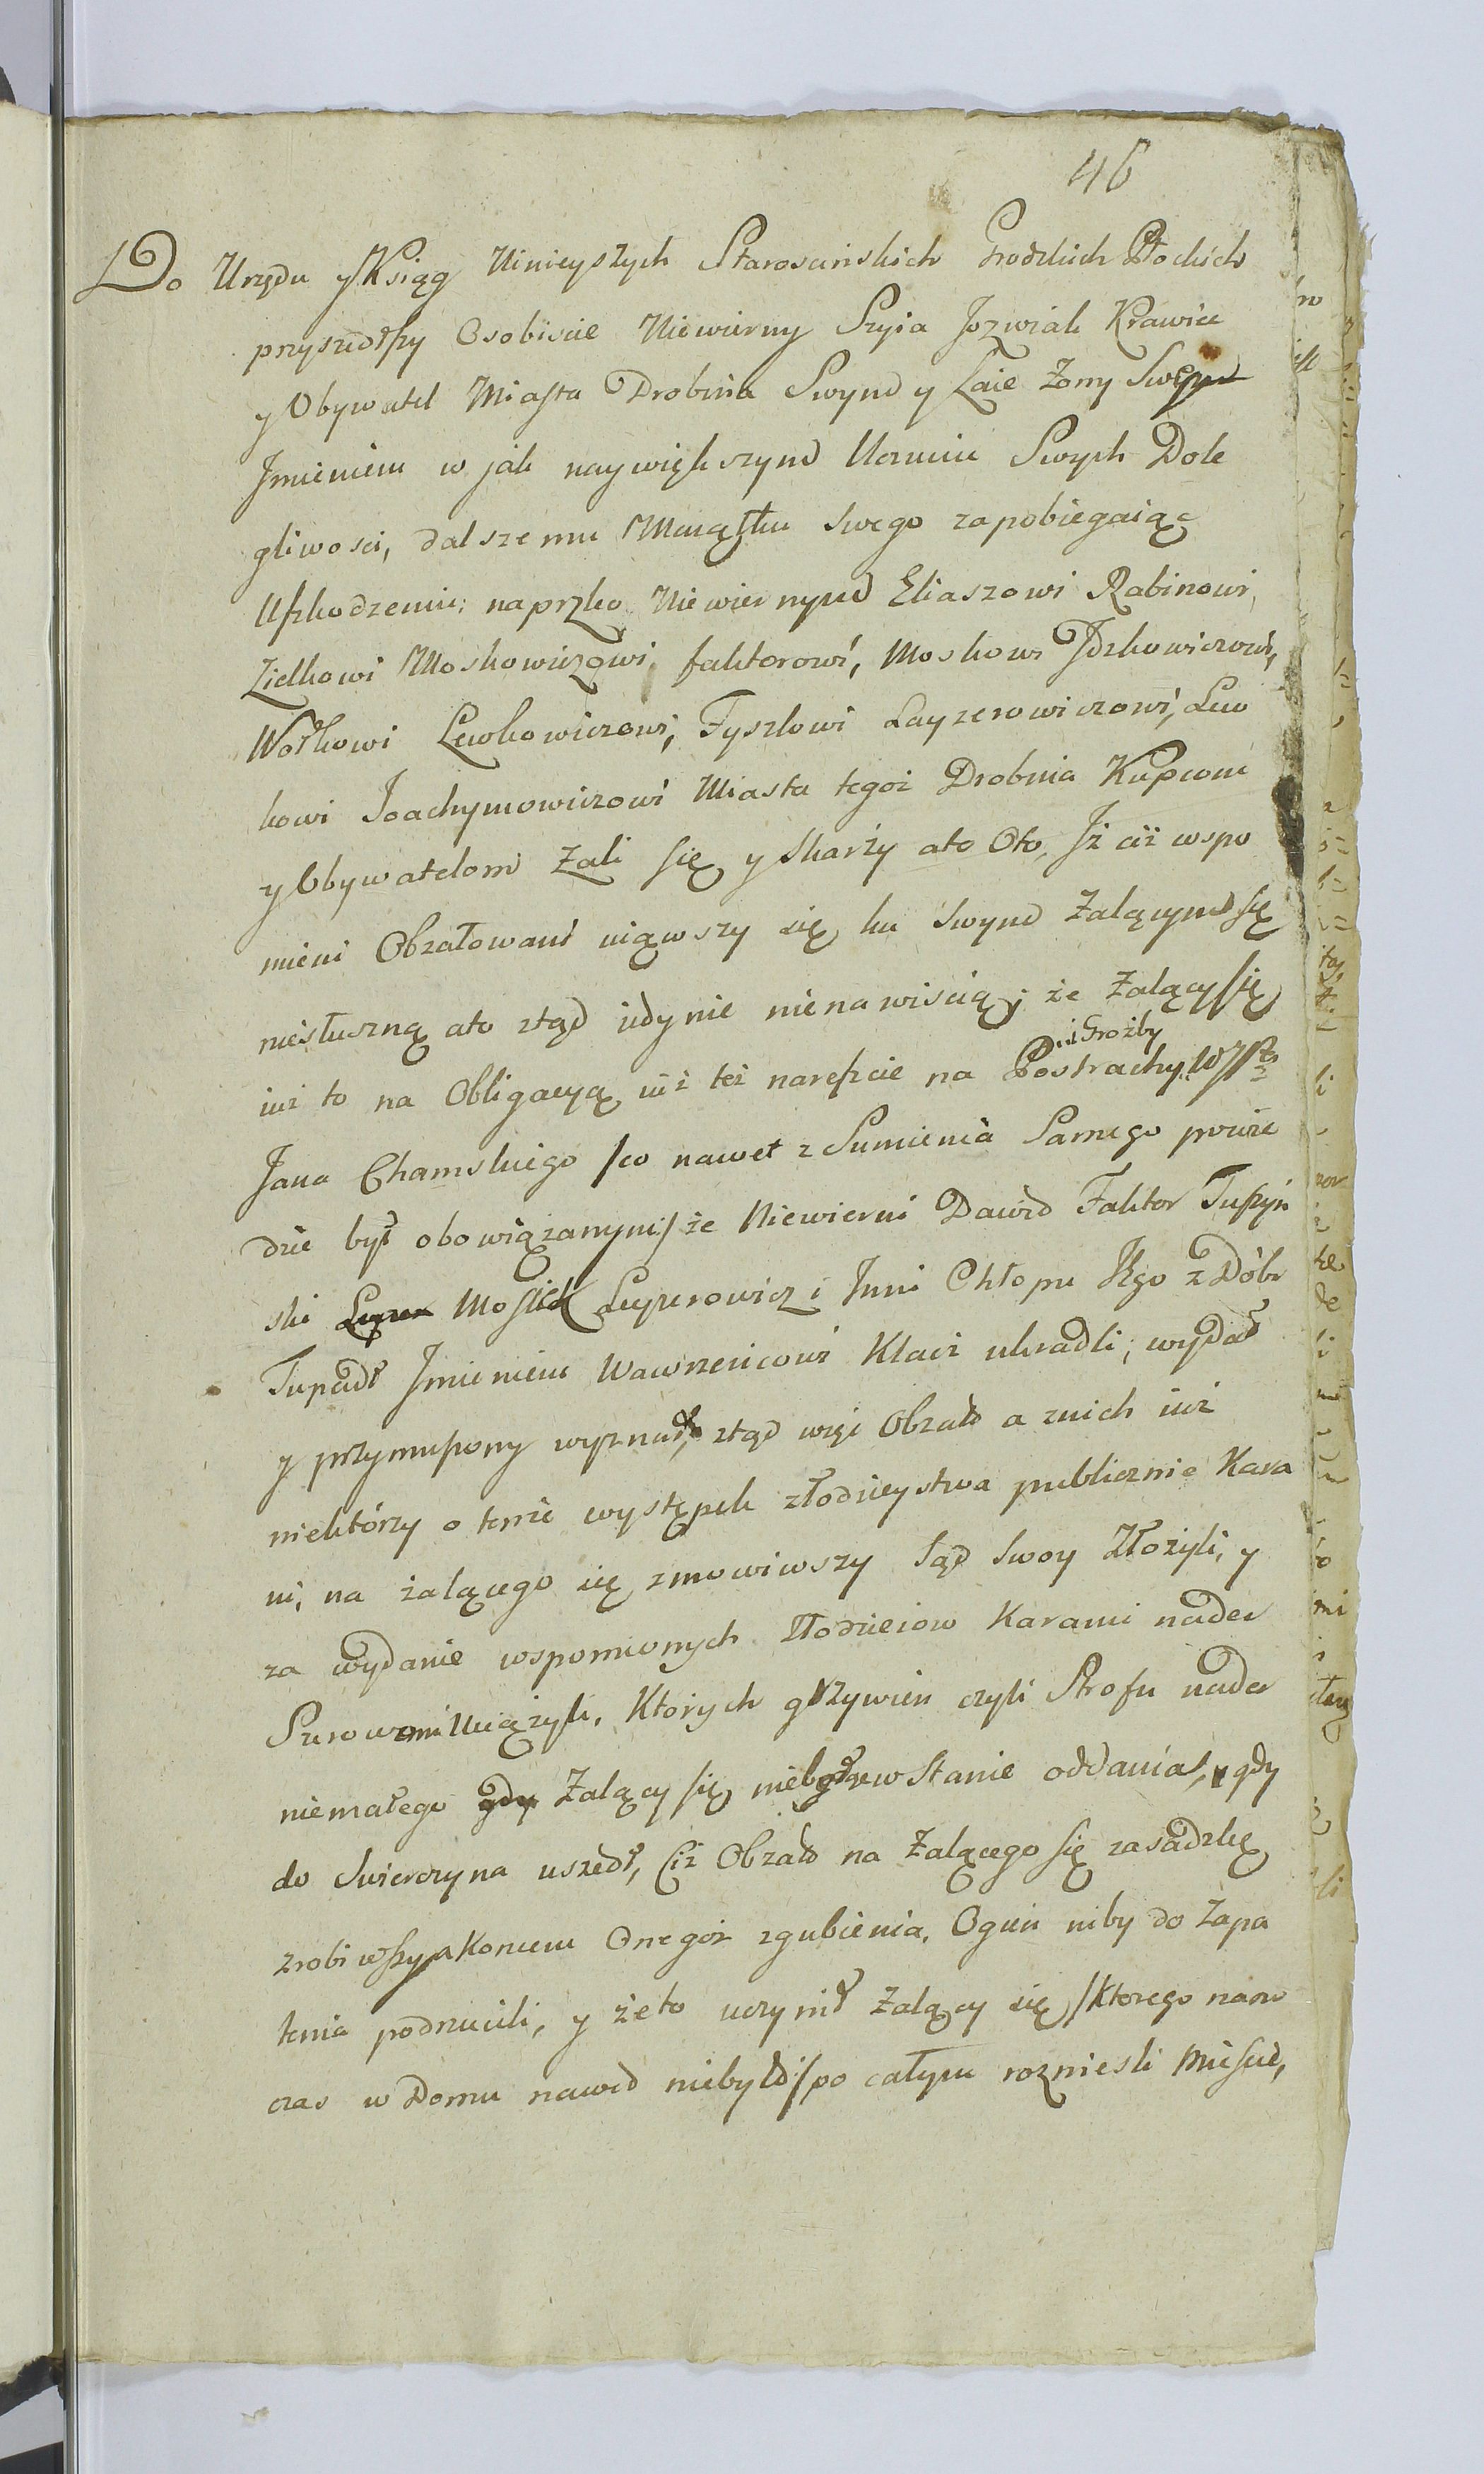 46
Do Urzędu y Ksiąg Ninieyszych Staroscinskich Grodzkich Płockich
przyszedłszy Osobiscie Niewierny Szyia Jozwiak Krawiec
y Obywatel Miasta Drobina Swym y Laie Żony Swey
Imieniem w jak naywiększym Uczuciu Swych Dole
gliwosci, dalszemu Maiątku swego zapobiegaiąc
Uszkodzeniu; naprzko Niewiernym Eliaszowi Rabinowi,
Zielkowi Moskowiczowi, faktorowi, Moskowi Jckowiczowi,
Wolkowi Lewkowiczowi, Fyszlowi Layzerowiczowi, Lew
kowi Joachymowiczowi Miasta tegoż Drobnia Kupcom
y Obywatelom Żali się y Skarży ato Oto, Jż ciż wspo
mieni Obżałowani uiąwszy się ku swym Żalącym się
niesłuszną ato ztąd iedynie nienawiscią; że Żalący się
iuż to na Obligacyą, iuż też nareszcie na Postrachy i Grozby WJP
Jana Chamskiego /co nawet z Sumienia Samego prawie
dzie był obowiązanym/ że Niewierni Dawid Faktor Tuszyń
ski Moszek Leyzerowicz i Inni Chłopu Jego z Dóbr
Tupadł Imieniem Wawrzencowi Klacz ukradli, wydał
y przymuszony wyznał, ztąd więc Obżałd a znich iuż
niektórzy o tenże występek złodzieystwa publicznie Kara
ni, na żalącego się zmowiwszy Sąd Swoy Złożyli, y
za wydanie wspomionych Złodzieiow Karami nader
Surowemi Uciążyli, Ktorych grzywien czyli Strofu nader
niemałego gdy Żalący się niebył w Stanie oddania, gdy
do Swierczyna uszedł, Ciż Obżałd na Żalącego się zasadzkę
zrobiwszy a Koncem Onegoż zgubienia, Ogień niby do Zapa
lenia podrzucili, y że to uczynił Żalący się /Ktorego naon
czas w Domu nawed niebyło/ po całym roznieśli Miescie,